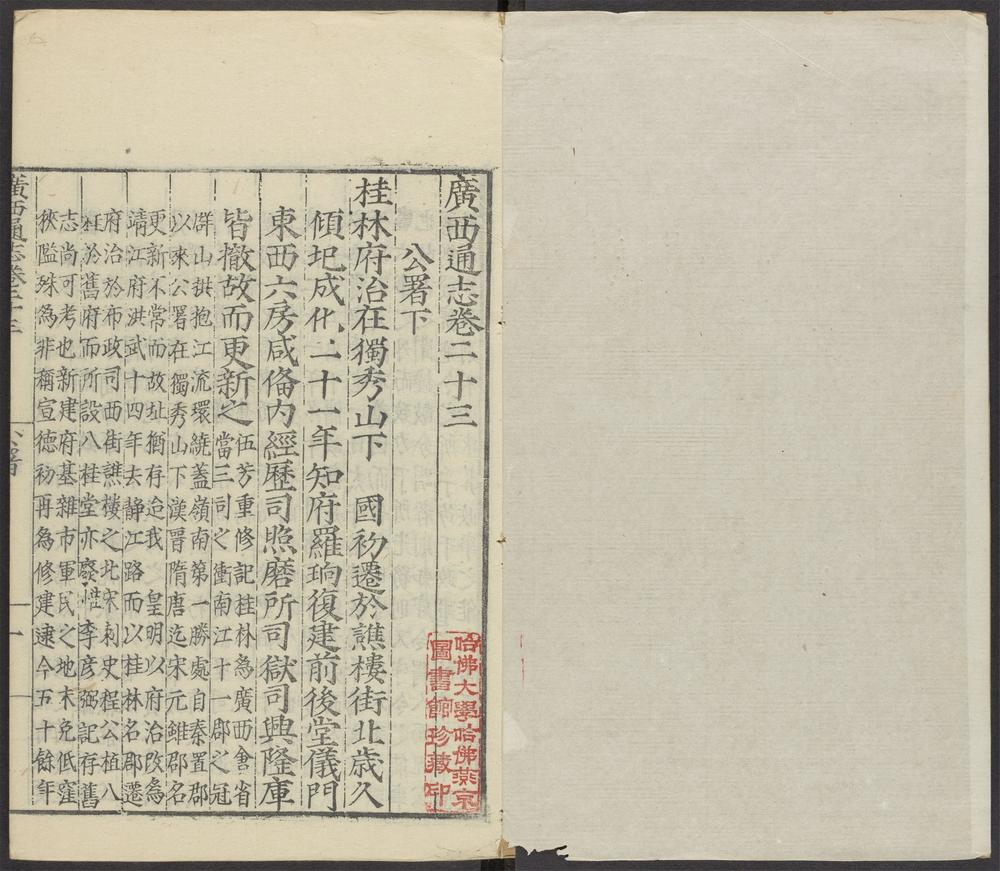 廣西通志卷二十三
公署下
桂林府治在獨秀山下 國初遷於譙樓街北歲久
傾圯成化二十一年知府羅珦復建前後堂儀門
東西六房咸俻内經歷司照磨所司獄司興隆庫
皆撤故而更新之
伍芳重修記桂林為廣西會省
當三司之衝南江十一郡之冠
群山拱抱江流環繞蓋嶺南第一勝處自秦置郡
以來公署在獨秀山下漢晉隋唐迄宋元雖郡名
更新不常而故址猶存迨我 皇明以府治改為
靖江府洪武十四年去静江路而以桂林名郡遷
府治於布政司西街譙樓之北宋刺史程公植八
桂於舊府而所設八桂堂亦廢惟李彦弼記存舊
志尚可考也新建府基雜市軍民之地未免低窪
狹隘殊為非稱宣德初再為修建逮今五十餘年
廣西通志卷二十三
公署
一
哈佛大學哈佛燕京
圖書館珍藏印